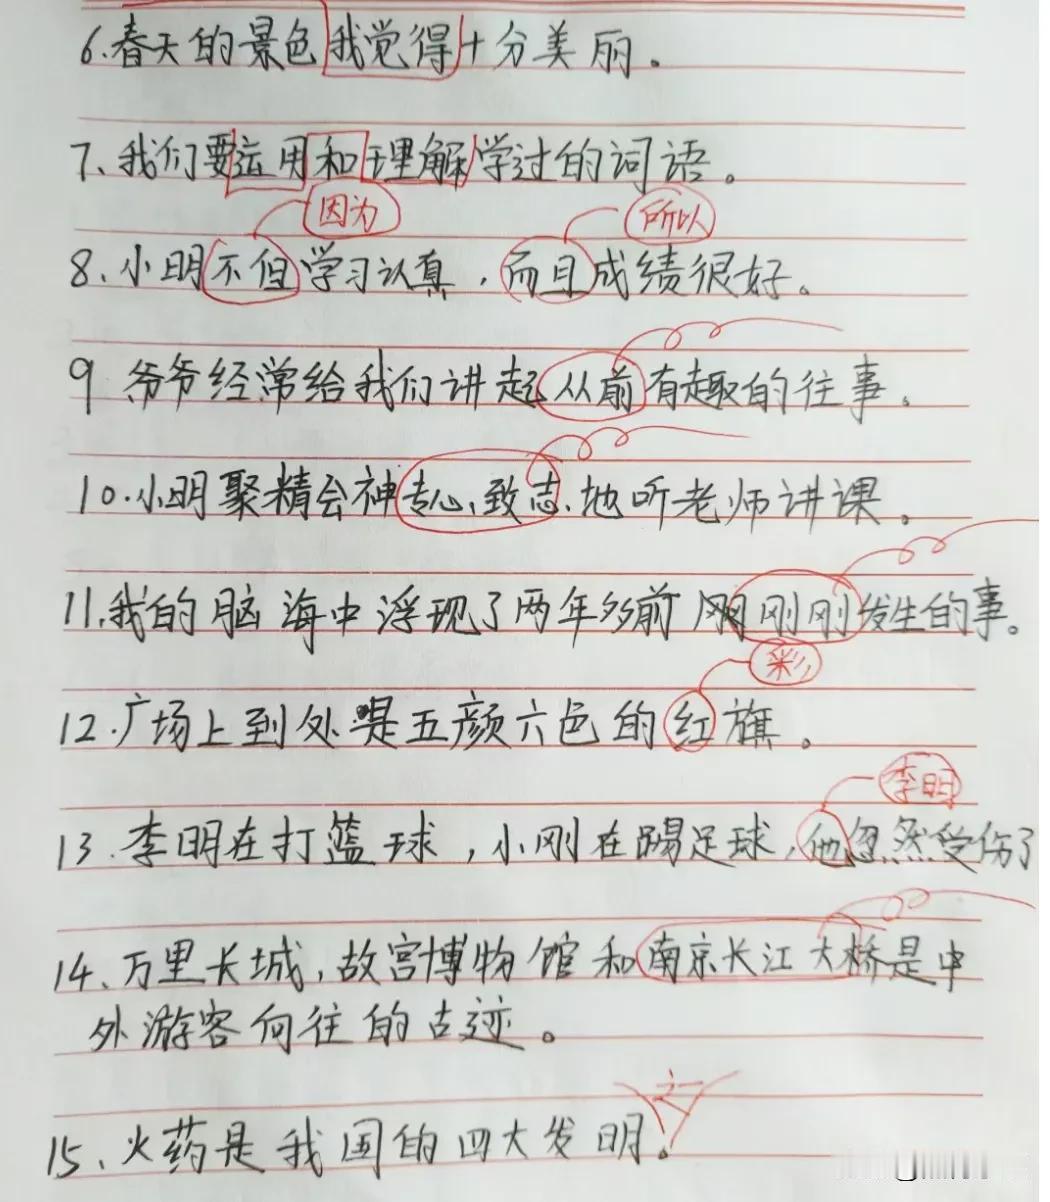 6.春天的景色我觉得十分美丽。
7、我们要运用和理解学过的词语。
因为 所以
8、小明不但学习认真，而且成绩很好。
9 爷爷经常给我们讲起从前有趣的往事。
10.小明聚精会神专心致志地听老师讲课。
11.我的脑海中浮现了两年多前刚刚发生的事。
彩
12.广场上到处是五颜六色的红旗。
李明
13.李明在打篮球，小刚在踢足球，他忽然受伤了
14、万里长城，故宫博物馆和南京长江大桥是中
外游客向往的古迹。
之一
15、火药是我国的四大发明。